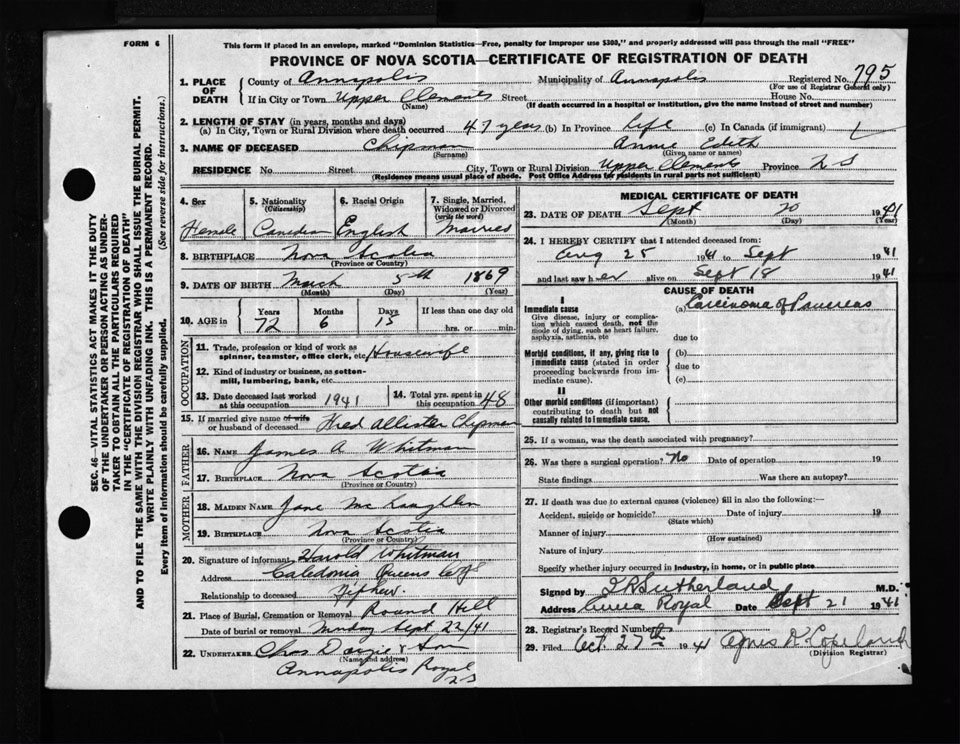 FORM 6
This form if placed in an envelope, marked "Dominion Statistics—Free, penalty for improper use $300," and properly addressed will pass through the mail "FREE"
PROVINCE OF NOVA SCOTIA—CERTIFICATE OF REGISTRATION OF DEATH
1. PLACE OF DEATH
County of Annapolis Municipality of Annapolis Registered No. 795
(For use of Registrar General only)
If in City or Town Upper Clements Street House No.
(Name) (If death occurred in a hospital or institution, give the name instead of street and number)
2. LENGTH OF STAY (in years, months and days)
(a) In City, Town or Rural Division where death occurred 47 years (b) In Province Life (c) In Canada (if immigrant)
3. NAME OF DECEASED Chipman Annie Edith
(Surname) (Given name or names)
RESIDENCE No. Street City, Town or Rural Division Upper Clements Province N S
(Residence means usual place of abode. Post Office Address for residents in rural parts not sufficient)
4. Sex 5. Nationality (Citizenship) 6. Racial Origin 7. Single, Married, Widowed or Divorced (write the word)
Female Canadian English Married
8. BIRTHPLACE Nova Scotia
(Province or Country)
9. DATE OF BIRTH March 5th 1869
(Month) (Day) (Year)
10. AGE in Years Months Days If less than one day old
72 6 15 hrs. or min.
OCCUPATION
11. Trade, profession or kind of work as spinner, teamster, office clerk, etc. Housewife
12. Kind of industry or business, as cotton-mill, lumbering, bank, etc.
13. Date deceased last worked at this occupation 1941
14. Total yrs. spent in this occupation 48
15. If married give name of wife or husband of deceased Fred Allister Chipman
FATHER
16. NAME James A Whitman
17. BIRTHPLACE Nova Scotia
(Province or Country)
MOTHER
18. MAIDEN NAME Jane McLaughlin
19. BIRTHPLACE Nova Scotia
(Province or Country)
20. Signature of informant Harold Whitman
Address Caledonia Queens
Relationship to deceased Nephew
21. Place of Burial, Cremation or Removal Round Hill
Date of burial or removal Monday Sept 22/41
22. UNDERTAKER Chas & Son
(Name and address)
Annapolis Royal
N S
MEDICAL CERTIFICATE OF DEATH
23. DATE OF DEATH Sept 20 1941
(Month) (Day) (Year)
24. I HEREBY CERTIFY that I attended deceased from:
Aug 25 1941 to Sept 1941
and last saw her alive on Sept 18 1941
CAUSE OF DEATH
I
Immediate cause
Give disease, injury or complication which caused death, not the mode of dying, such as heart failure, asphyxia, asthenia, etc
(a) Carcinoma of Pancreas
due to
Morbid conditions, if any, giving rise to immediate cause (stated in order proceeding backwards from immediate cause).
(b)
due to
(c)
II
Other morbid conditions (if important) contributing to death but not causally related to immediate cause.
25. If a woman, was the death associated with pregnancy?
26. Was there a surgical operation? No Date of operation 19
State findings Was there an autopsy?
27. If death was due to external causes (violence) fill in also the following:—
Accident, suicide or homicide? Date of injury 19
(State which)
Manner of injury
(How sustained)
Nature of injury
Specify whether injury occurred in Industry, in home, or in public place
Signed by Sutherland M.D.
Address Anna Royal Date Sept 21 1941
28. Registrar's Record Number
29. Filed Oct. 27th 1941 Agnes K Copeland
(Division Registrar)
SEC. 46—VITAL STATISTICS ACT MAKES IT THE DUTY
OF THE UNDERTAKER OR PERSON ACTING AS UNDER-
TAKER TO OBTAIN ALL THE PARTICULARS REQUIRED
IN THE "CERTIFICATE OF REGISTRATION OF DEATH"
AND TO FILE THE SAME WITH THE DIVISION REGISTRAR WHO SHALL ISSUE THE BURIAL PERMIT.
WRITE PLAINLY WITH UNFADING INK. THIS IS A PERMANENT RECORD.
Every item of information should be carefully supplied. (See reverse side for instructions.)